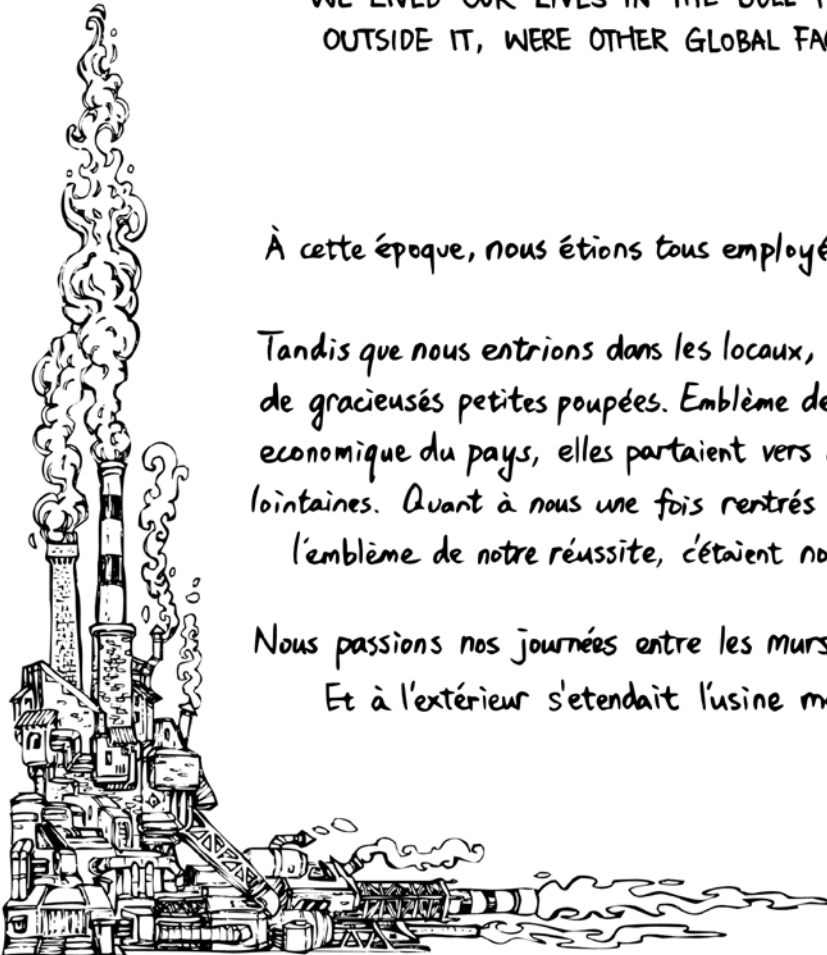 WE LIVED OUR LIVES IN THE DOLL
OUTSIDE IT, WERE OTHER GLOBAL
À cette époque, nous étions tous
Tandis que nous entrions dans les locaux,
de gracieusés petites poupées. Emblème de
economique du pays, elles partaient vers
lointaines. Quant à nous une fois rentrés
l'emblème de notre réussite, c'étaient
Nous passions nos journées entre les murs
Et à l'extérieur s'etendait l'usine